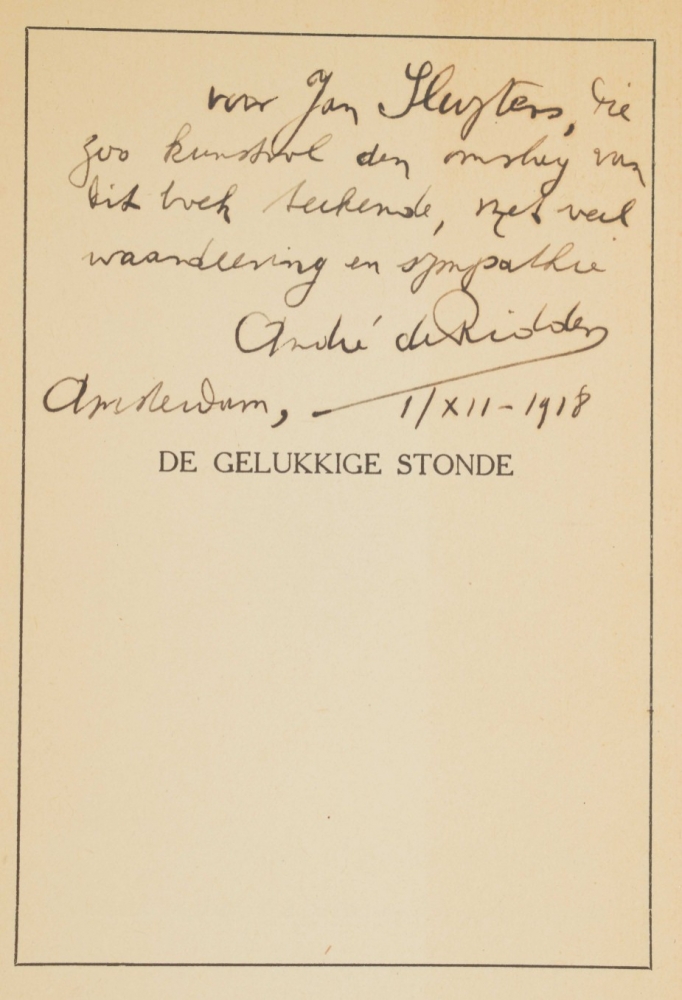 voor Jan Sluyters, die
zoo kunstvol den omslag van
dit boek teekende, met veel
waardeering en sympathie
André de Ridder
Amsterdam, - 1/XII-1918
DE GELUKKIGE STONDE